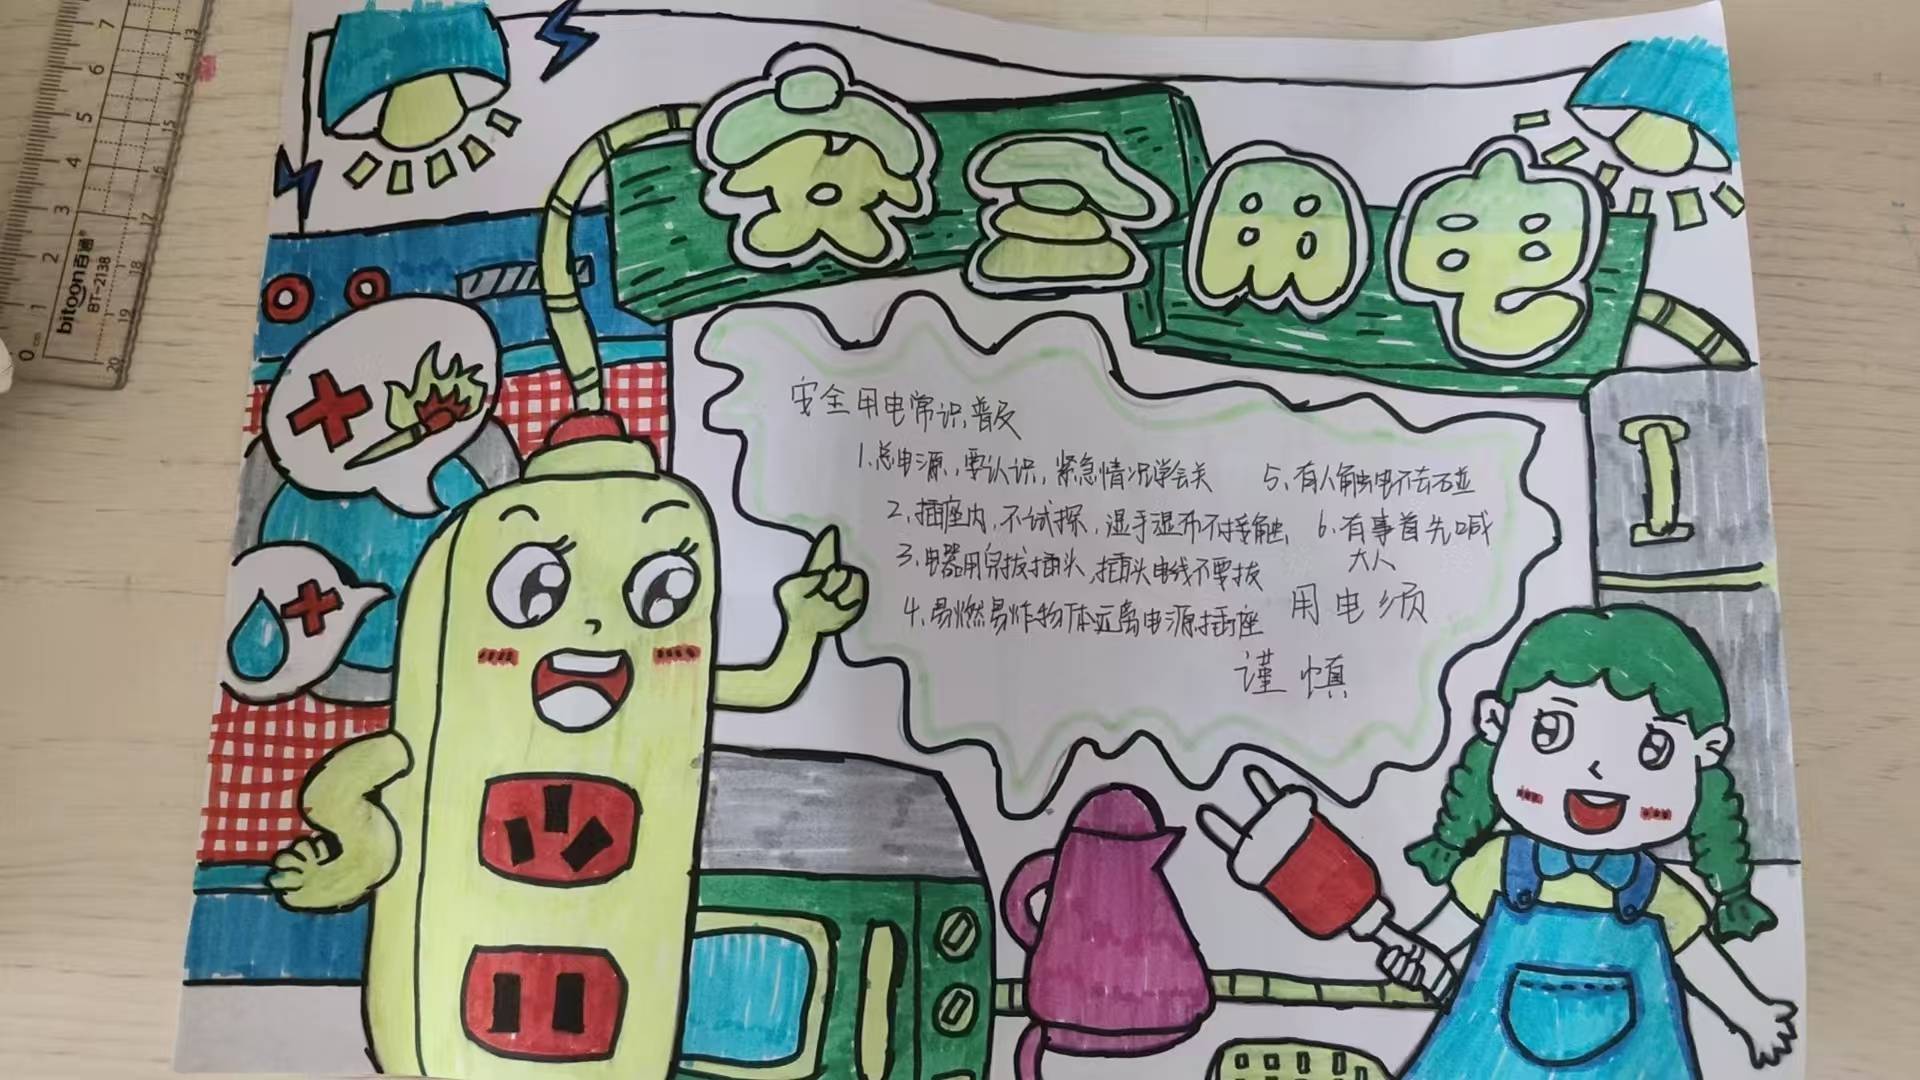 安全用电
安全用电常识普及
1.总电源,要认识,紧急情况学会关
2、插座内,不试探,湿手湿布不接触、
3、电器用完拔插头,插头电线不要拔
4、易燃易炸物体远离电源插座
5、有人触电不去碰
6、有事首先喊
大人
用电须
谨慎
bitoon百通®
BT-2138
0 cm 1 2 3 4 5 6 7
13 14 15 16 17 18 19 20